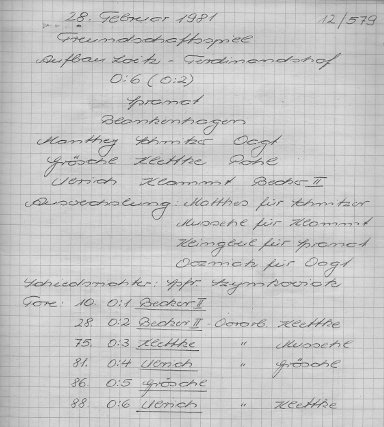 28. Februar 1981 12/579
Freundschaftsspiel
Aufbau Loitz - Ferdinandshof
0:6 (0:2)
Franat
Blankenhagen
Manthey Schmitzer Vogt
Grösche Klettke Pohl
Ulrich Klammt Becker II
Auswechslung: Matthes für Schmitzer
Muschel für Klammt
für
für Vogt
Schiedsrichter:
Tore: 10. 0:1 Becker II
28. 0:2 Becker II Vorarb. Klettke
75. 0:3 Klettke " Muschel
81. 0:4 Ulrich " Grösche
86. 0:5 Grösche
88. 0:6 Ulrich " Klettke